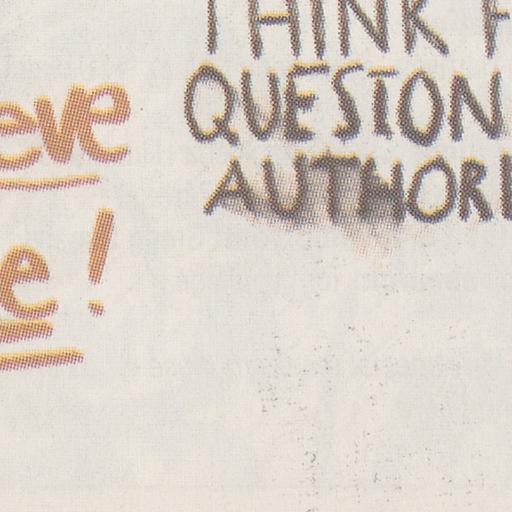 eve
e!
THINK F
QUESTION
AUTHORI